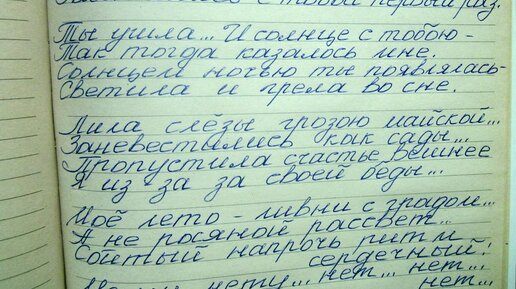 с тобой первый раз.
Ты ушла... И солнце с тобою -
Так тогда казалось мне.
Солнцем ночью ты появлялась -
Светила и грела во сне.
Лила слёзы грозою майской...
Заневестились как сады...
Пропустила счастье вешнее
Я из за за своей беды...
Моё лето - ливни с градом...
А не росяной рассвет...
Сбитый напрочь ритм
сердечный:
нету... нет... нет...
нет...